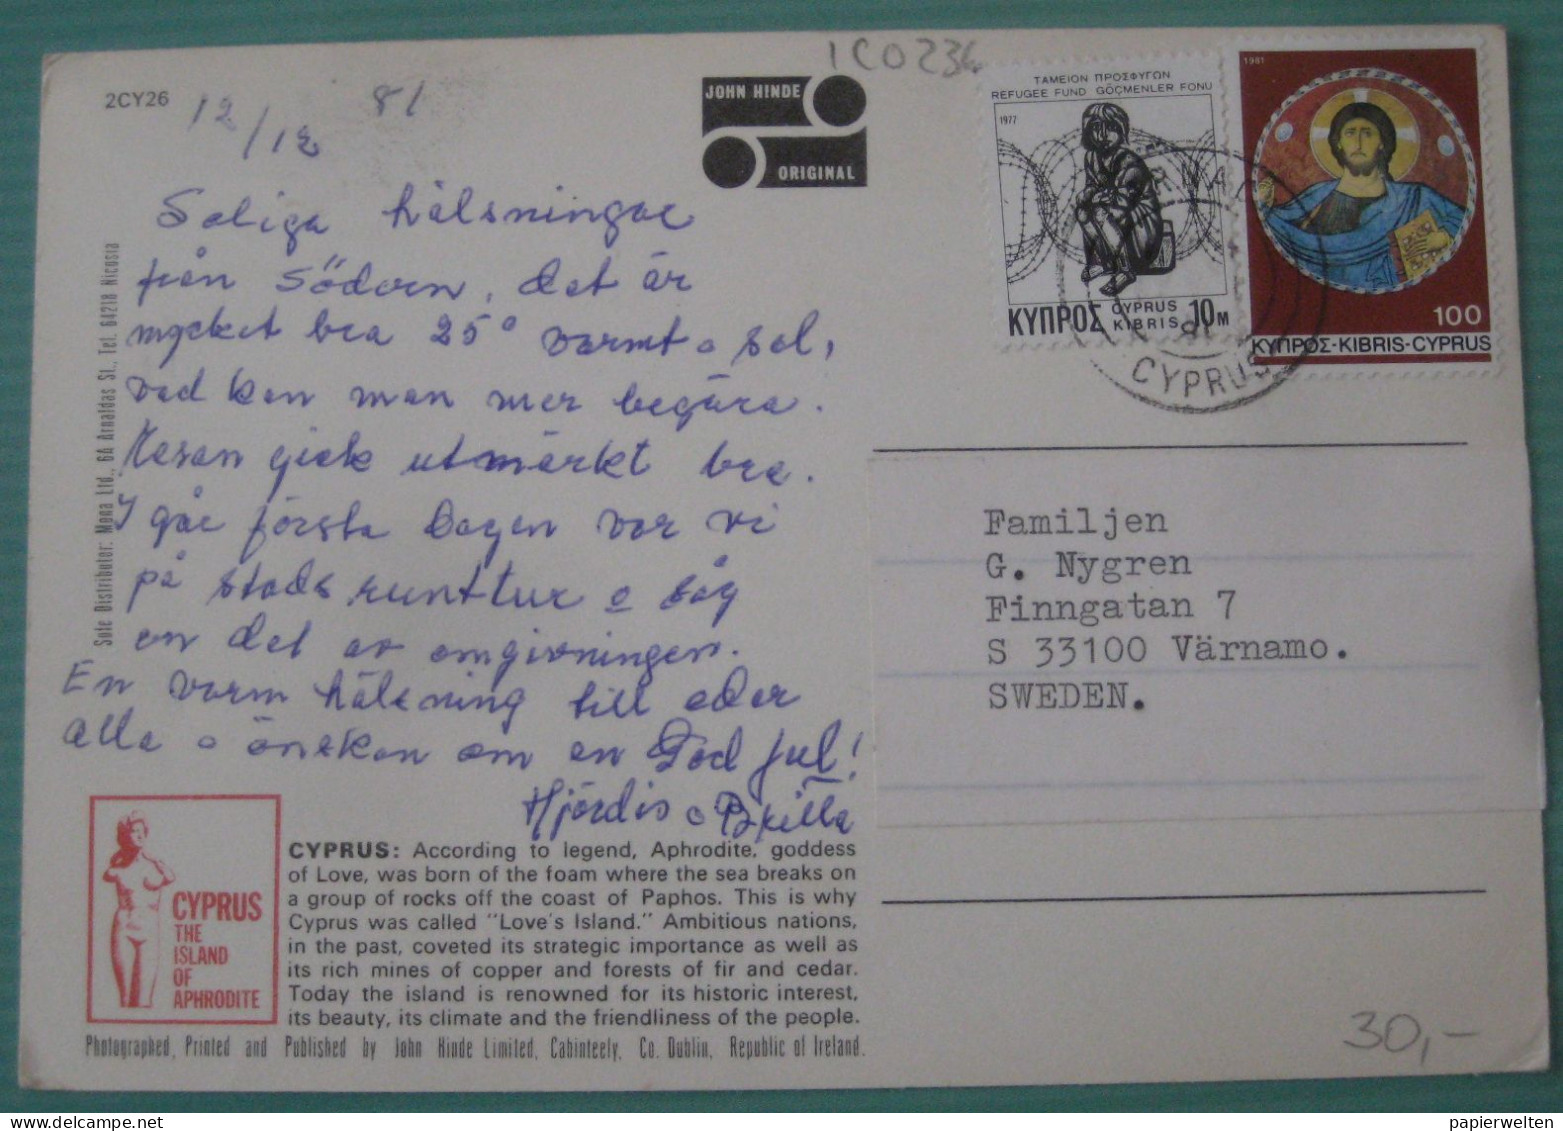 2CY26
12/12 81
JOHN HINDE
ORIGINAL
1CO234
ΤΑΜΕΙΟΝ ΠΡΟΣΦΥΓΩΝ
REFUGEE FUND GÖÇMENLER FONU
1977
ΚΥΠΡΟΣ CYPRUS KIBRIS 10 M
1981
100
ΚΥΠΡΟΣ-KIBRIS-CYPRUS
CYPRUS
Soliga hälsningar
från Södern, det är
mycket bra 25° varmt o sol,
vad kan man mer begära.
Resan gick utmärkt bra.
I går första dagen var vi
på stadsrunttur o såg
en del av omgivningen.
En varm hälsning till eder
alla o önskan om en God Jul!
Hjördis o
Familjen
G. Nygren
Finngatan 7
S 33100 Värnamo.
SWEDEN.
Sole Distributor: Mena Ltd., 6A Arnaldas St., Tel. 64218 Nicosia
CYPRUS
THE
ISLAND
OF
APHRODITE
CYPRUS: According to legend, Aphrodite, goddess
of Love, was born of the foam where the sea breaks on
a group of rocks off the coast of Paphos. This is why
Cyprus was called "Love's Island." Ambitious nations,
in the past, coveted its strategic importance as well as
its rich mines of copper and forests of fir and cedar.
Today the island is renowned for its historic interest,
its beauty, its climate and the friendliness of the people.
Photographed, Printed and Published by John Hinde Limited, Cabinteely, Co. Dublin, Republic of Ireland.
30,-
papierwelten